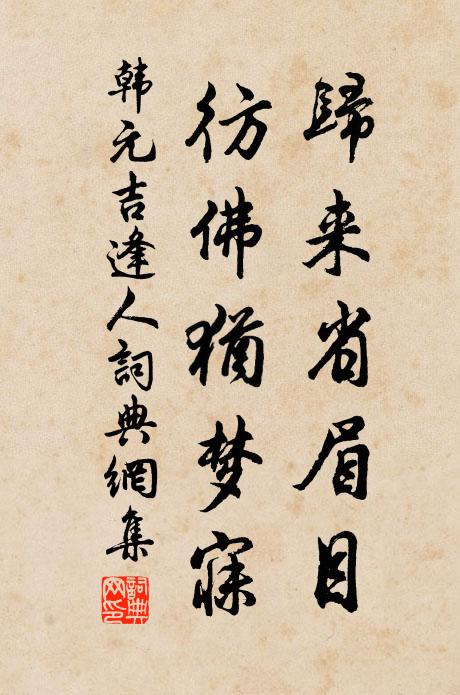 歸来省眉目
彷佛猶梦寐
韩元吉逢人詞典網集
詞典网印